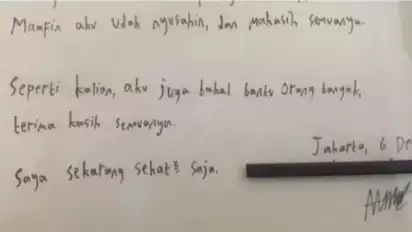 Maafin aku udah nyusahin, dan makasih semuanya.
Seperti kalian, aku juga bakal bantu orang banyak,
terima kasih semuanya.
Jakarta, 6 De
Saya sekarang sehat² saja.